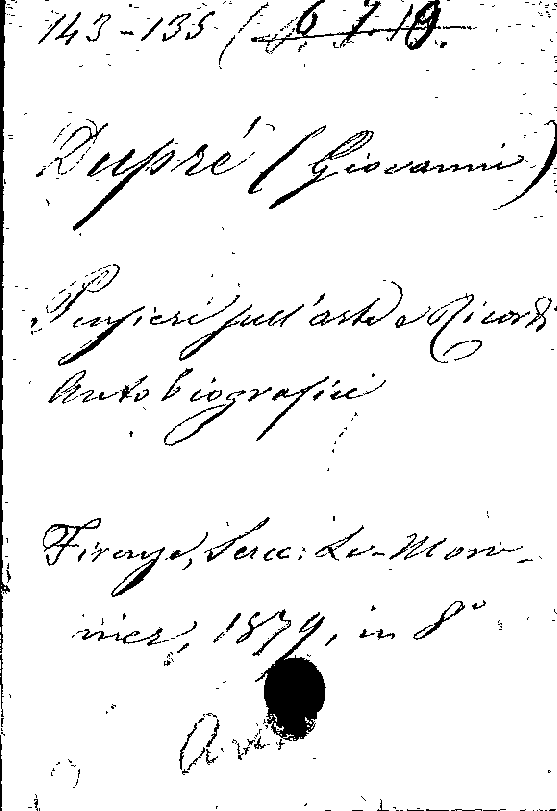 143-135 (
Dupré (Giovanni)
Pensieri sull'arte e Ricordi
Autobiografici
Firenze, Succ: Le-Mon-
nier, 1879, in 8°